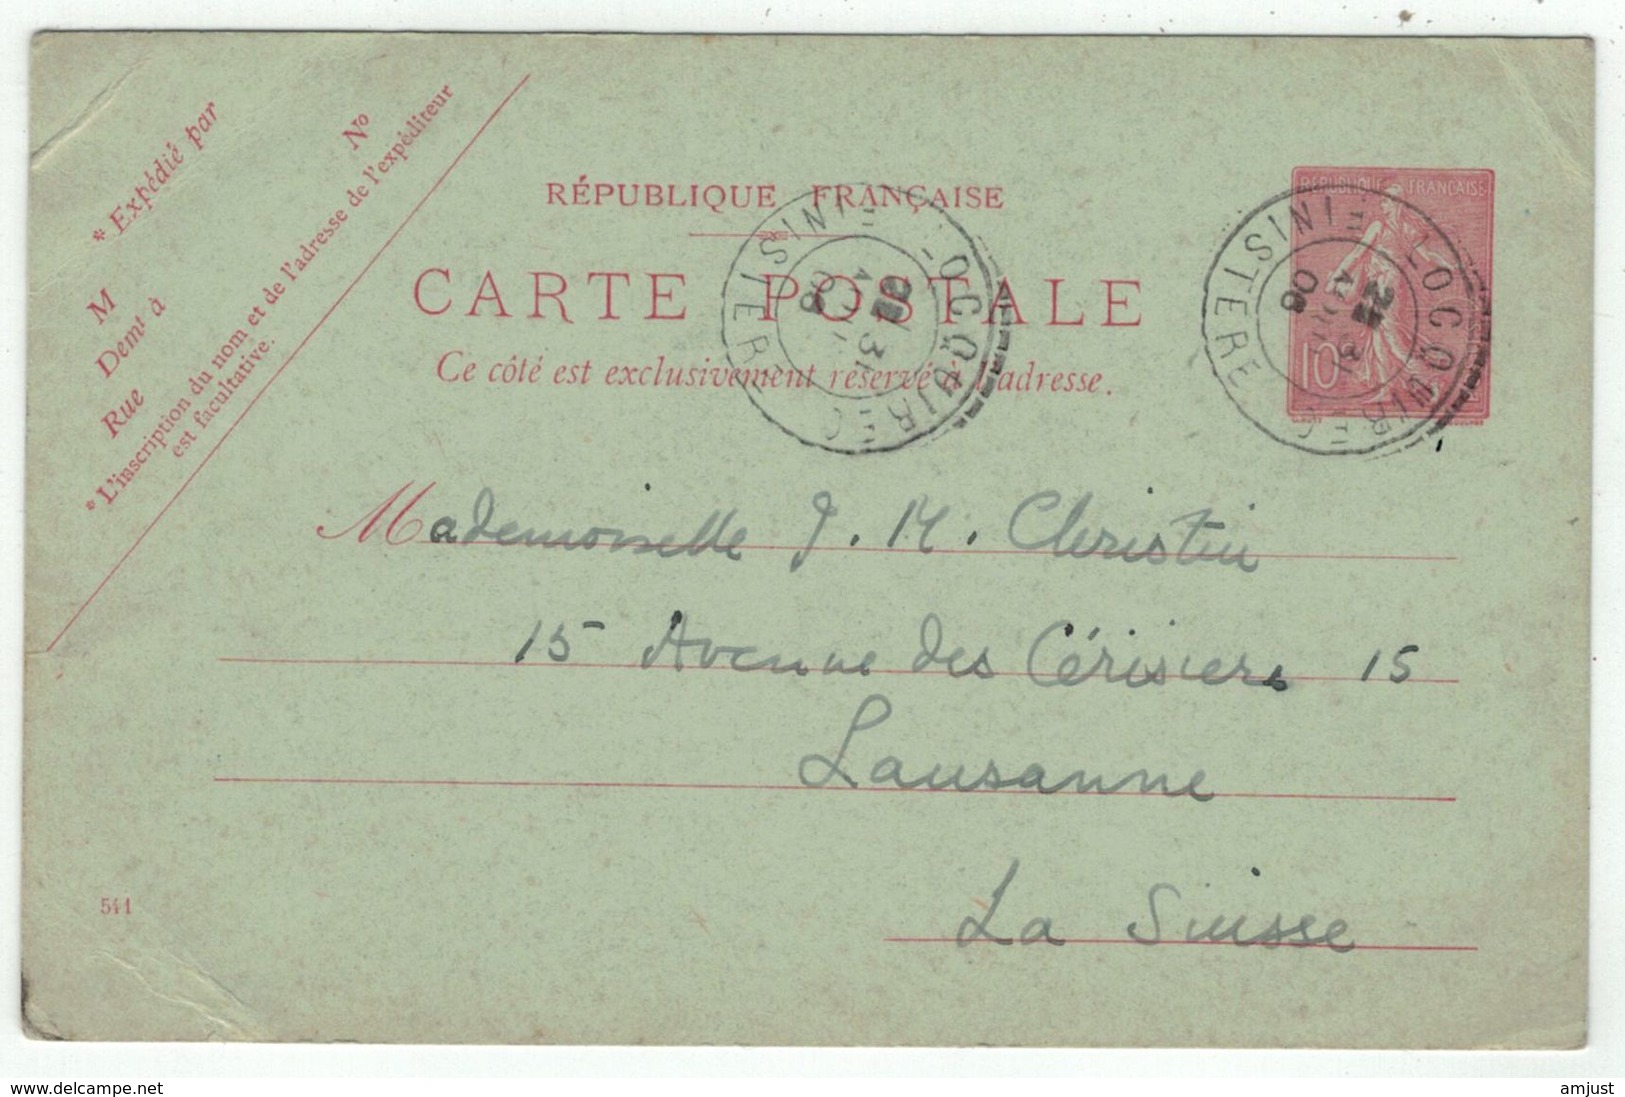 * Expédié par
M
Nº
Demt à
Rue
* L'inscription du nom et de l'adresse de l'expéditeur
est facultative.
RÉPUBLIQUE FRANÇAISE
CARTE POSTALE
Ce côté est exclusivement réservé à l'adresse.
LOCQUIREC
FINISTERE
3E
21
AOUT
06
RÉPUBLIQUE FRANÇAISE
10
LOCQUIREC
FINISTERE
3E
21
AOUT
06
Mademoiselle J. M. Christin
15 Avenue des Cérisiers 15
Lausanne
La Suisse
541
www.delcampe.net
amjust